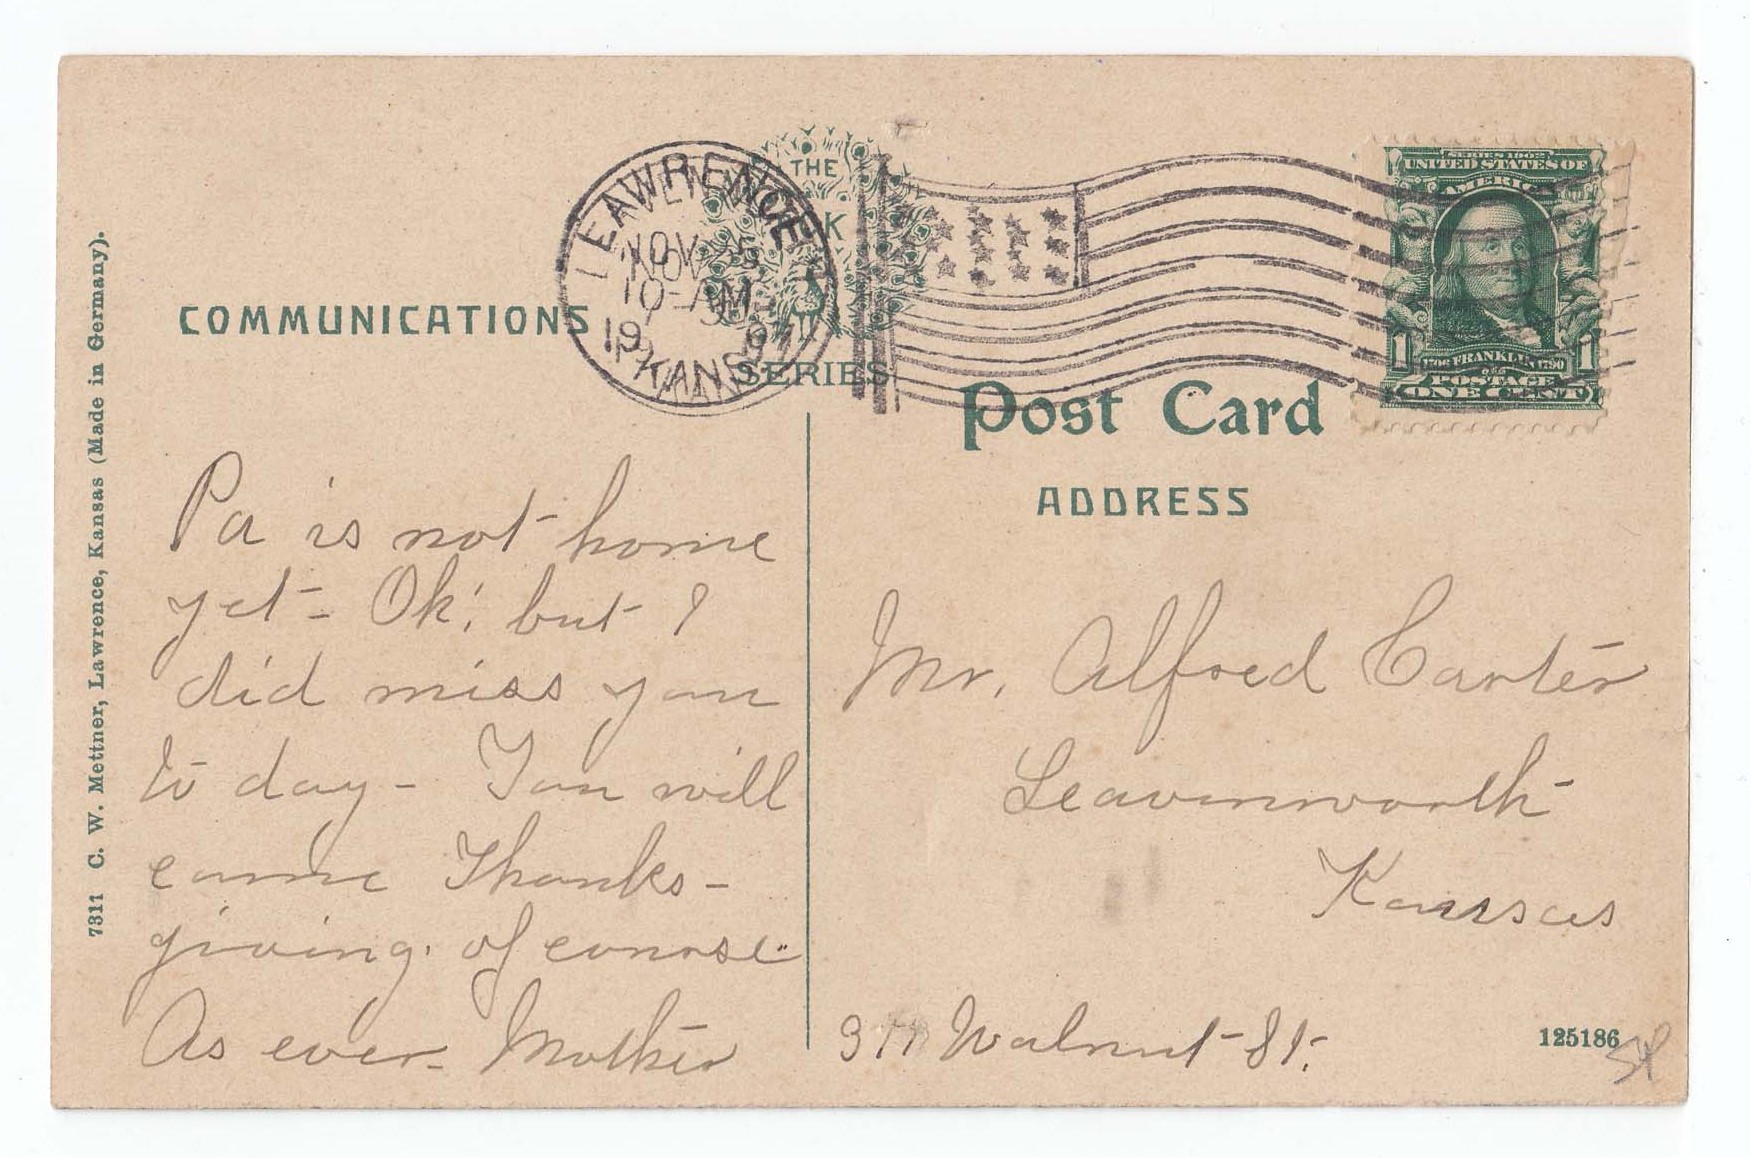 7311 C. W. Mettner, Lawrence, Kansas (Made in Germany).
COMMUNICATIONS
LAWRENCE
NOV
10-AM
19 07
KANS
THE
K
SERIES
SERIES 1902
UNITED STATES OF
AMERICA
1 FRANKLIN 1790 1
POSTAGE
ONE CENT
Post Card
ADDRESS
Pa is not home
yet - Ok! but I
did miss you
to day - You will
come Thanks-
giving. of course.
As ever - Mother
Mr. Alfred Carter
Leavenworth
Kansas
Walnut St.
125186